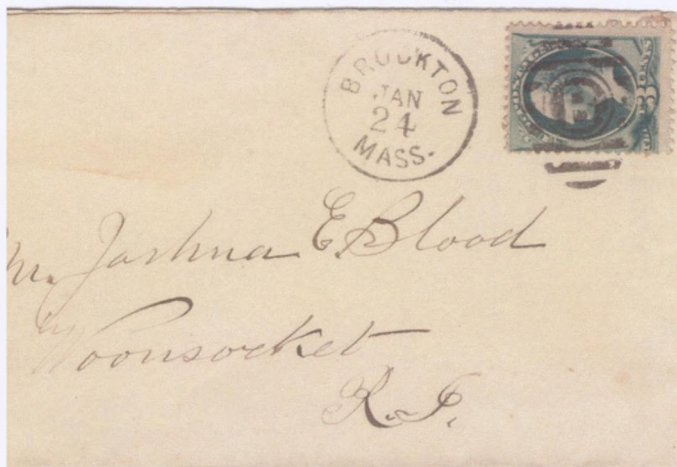 BROCKTON
JAN
24
MASS.
3 CENTS
Mr. Joshua E. Blood
Woonsocket
R. I.